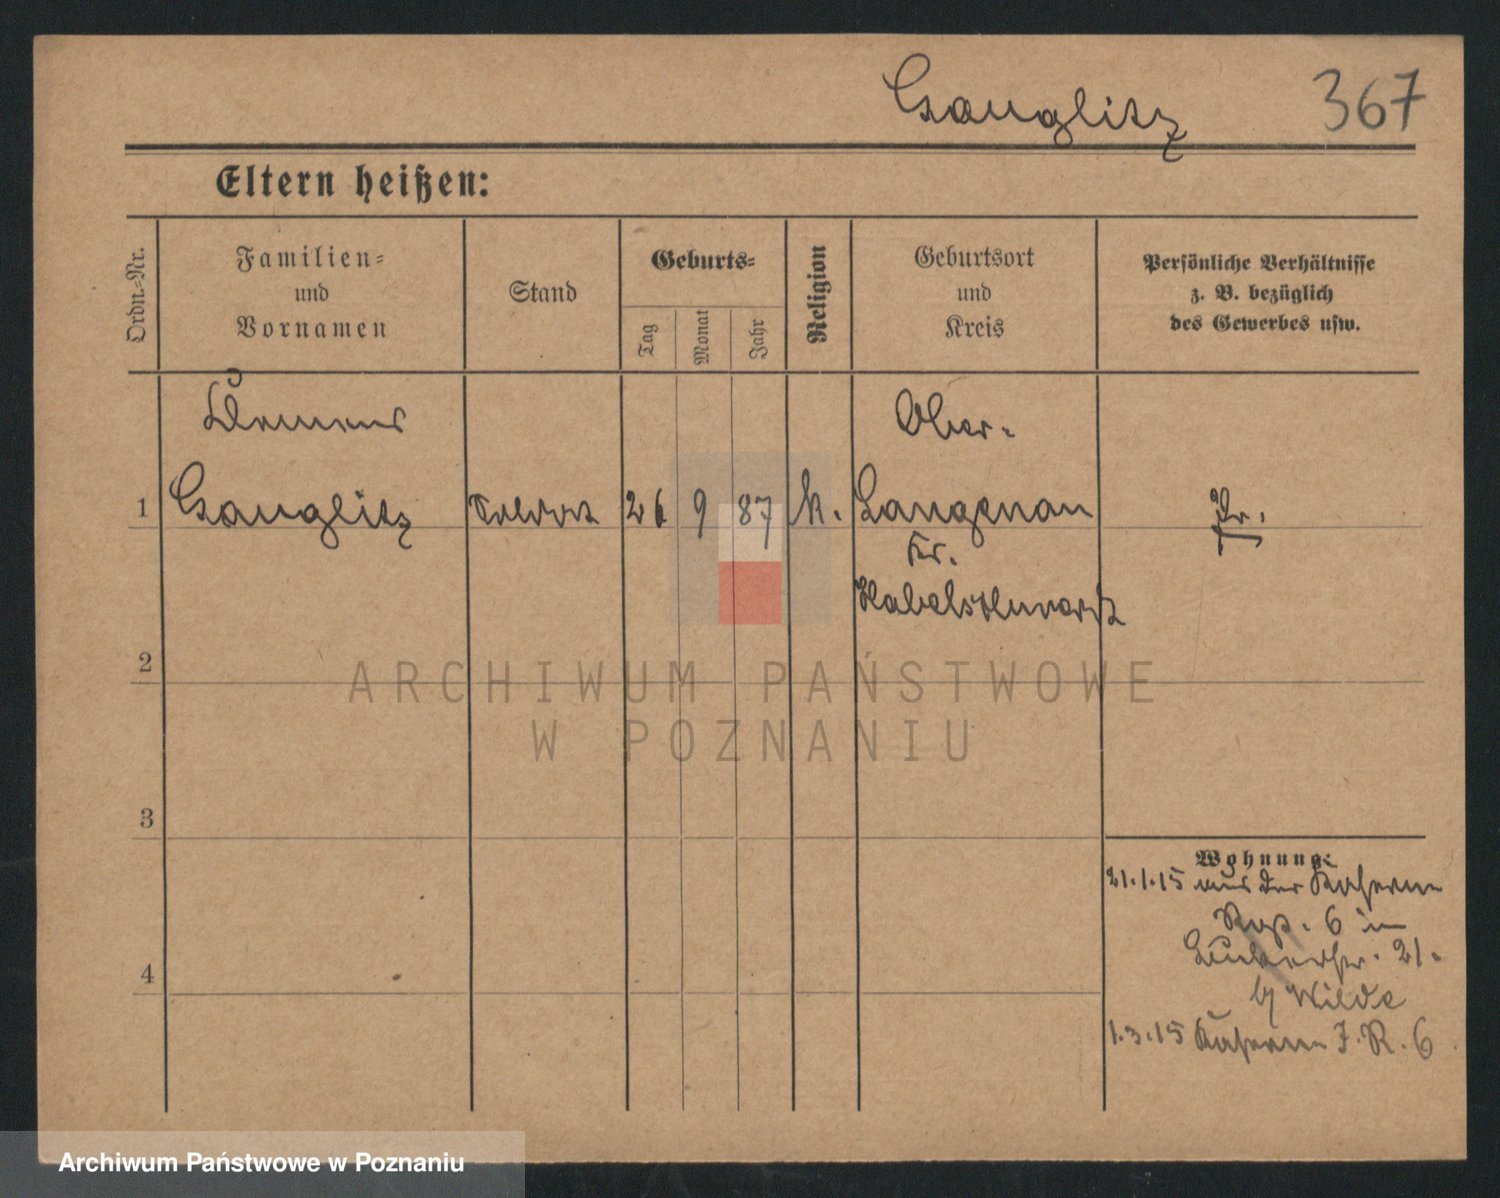 Ganglitz 367
Eltern heißen:
Ordn.-Nr.
Familien-
und
Vornamen
Stand
Geburts-
Tag
Monat
Jahr
Religion
Geburtsort
und
Kreis
Persönliche Verhältnisse
z. B. bezüglich
des Gewerbes usw.
Clemens
Ober-
1 Ganglitz Soldat 26 9 87 k. Langenau Pr.
Kr.
Habelschwerdt
2
3
4
Wohnung:
21.1.15 aus der Kaserne
6 in
21.
b/ Wilde
1.3.15 Kaserne J. R. 6
ARCHIWUM PAŃSTWOWE
W POZNANIU
Archiwum Państwowe w Poznaniu